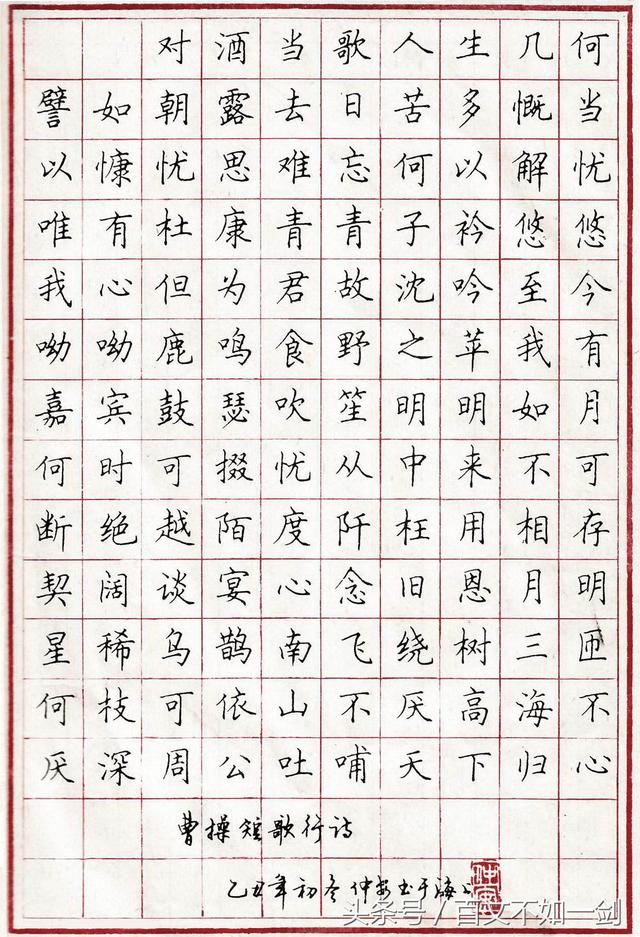 对酒当歌人生几何
譬如朝露去日苦多慨当
以慷忧思难忘何以解忧
唯有杜康青青子衿悠悠
我心但为君故沈吟至今
呦呦鹿鸣食野之苹我有
嘉宾鼓瑟吹笙明明如月
何时可掇忧从中来不可
断绝越陌度阡枉用相存
契阔谈宴心念旧恩月明
星稀乌鹊南飞绕树三匝
何枝可依山不厌高海不
厌深周公吐哺天下归心
曹操短歌行诗
乙丑年初冬仲安书于海上
头条号/百文不如一剑